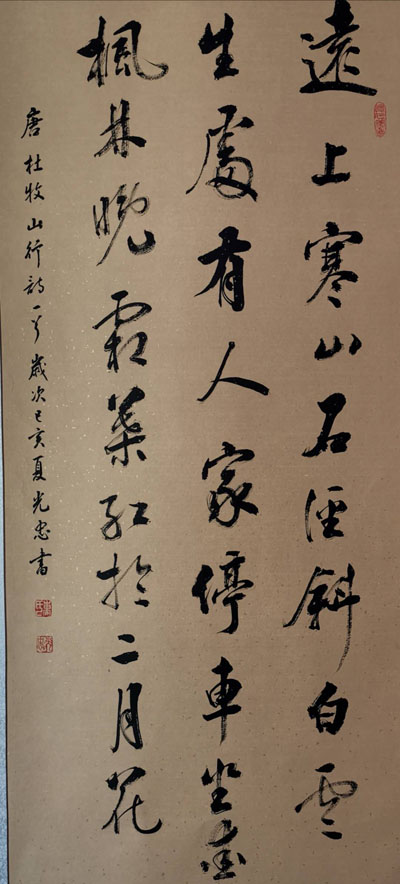 遠上寒山石徑斜白雲
生處有人家停車坐愛
楓林晚霜葉紅於二月花
唐杜牧山行詩一首歲次己亥夏光忠書